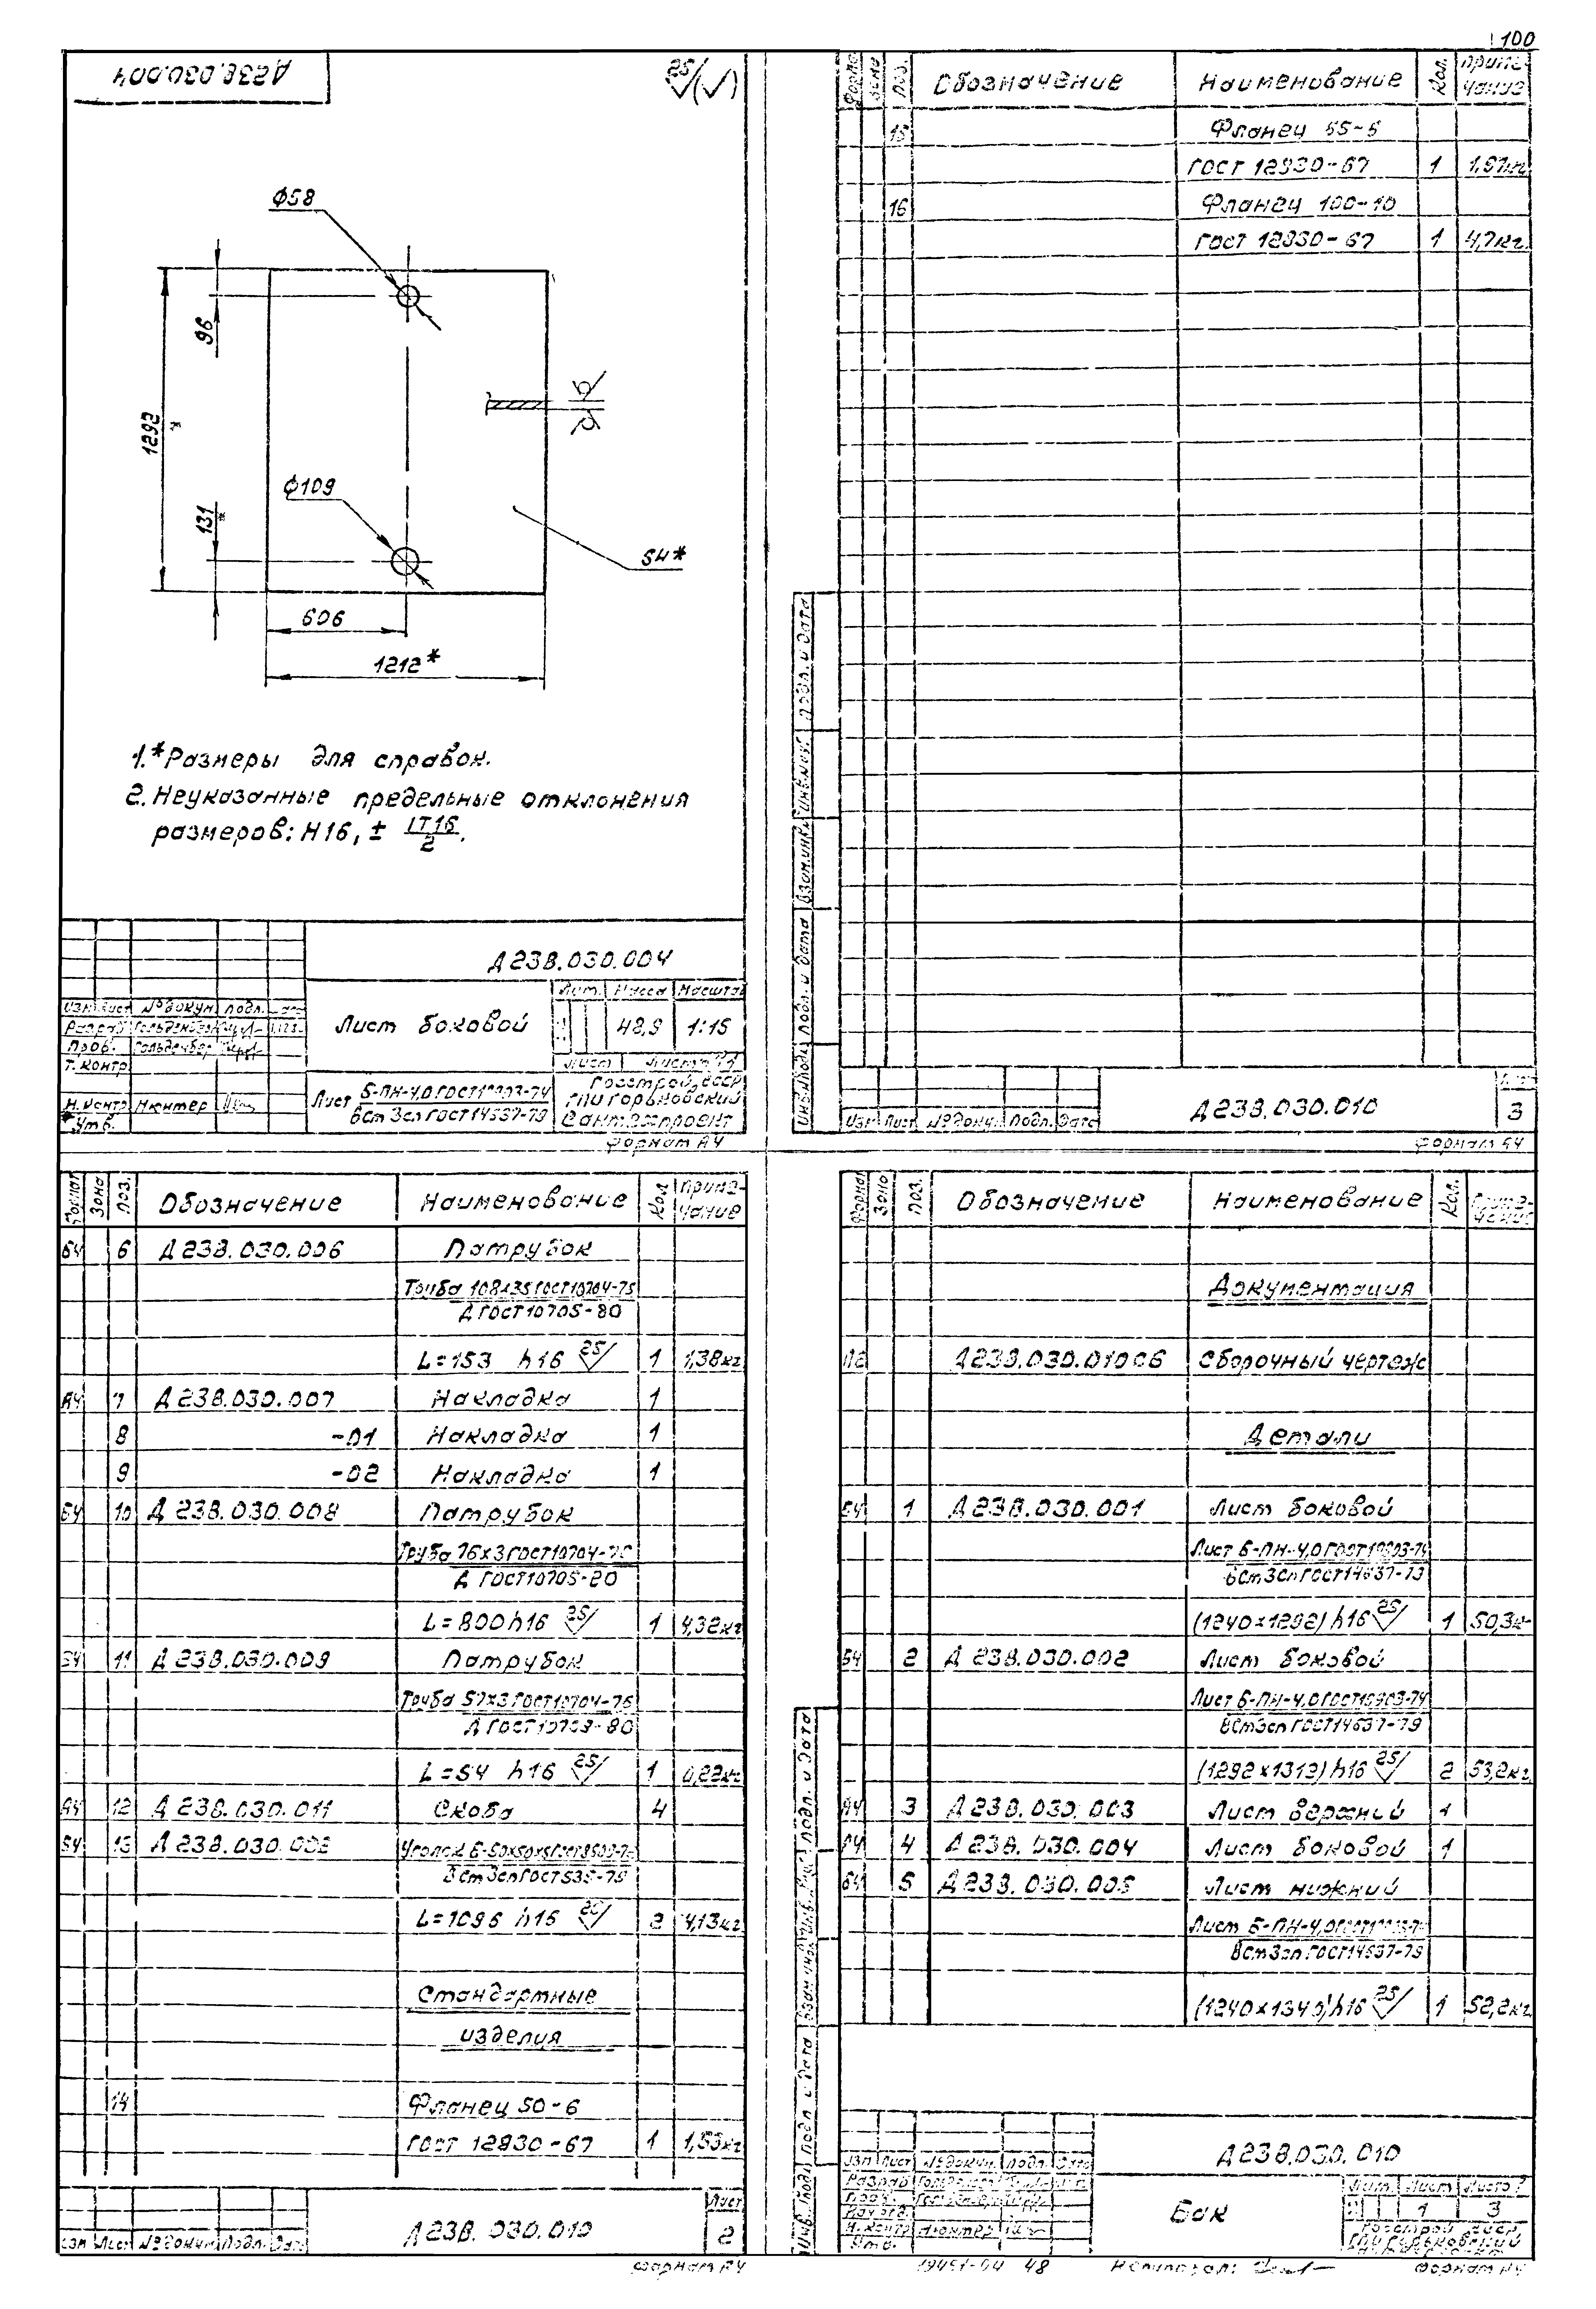 100
Д23В.030.004
25
Ф58
96
1292
*
Ф109
131
*
S4*
606
1212*
1.*Размеры для справок.
2. Неуказанные предельные отклонения
размеров: H16, ± IT16
2
Д23В.030.004
Лит. Масса Масштаб
Изм Лист №докум. подл. Дата
Разраб
Лист боковой
48,9 1:15
Пров.
Т. контр
Лист
Лист Б-ПН-4,0 ГОСТ19903-74
ВСт3сп ГОСТ14637-79
Госстрой СССР
ГПИ Горьковский
Сантехпроект
Н.контр Нюнтер
Утв.
Формат А4
Поз. Обозначение Наименование Кол. Приме-
чание
15 Фланец 65-6
ГОСТ 12830-67 1 1,97кг
16 Фланец 100-10
ГОСТ 12830-67 1 4,7кг
Подл. и дата
Взам.инв.
Подл. и дата
Изм Лист №докум. Подл. Дата
Д23В.030.010
3
Формат
Формат Зона Поз. Обозначение Наименование Кол Приме-
чание
БЧ 6 Д23В.030.006 Патрубок
Труба 108х3,5 ГОСТ10704-76
Д ГОСТ10705-80
L=153 h16 25 1 1,38кг
А4 7 Д23В.030.007 Накладка 1
8 -01 Накладка 1
9 -02 Накладка 1
БЧ 10 Д23В.030.008 Патрубок
Труба 76х3 ГОСТ10704-76
Д ГОСТ10705-80
L=800 h16 25 1 4,32кг
БЧ 11 Д23В.030.009 Патрубок
Труба 57х3 ГОСТ10704-76
Д ГОСТ10705-80
L=54 h16 25 1 0,22кг
А4 12 Д23В.030.011 Скоба 4
БЧ 13 Уголок Б-50х50х5
ВСт3сп ГОСТ535-79
L=1096 h16 2 4,13кг
Стандартные
изделия
14 Фланец 50-6
ГОСТ 12830-67 1 1,53кг
Изм Лист №докум. Подл. Дата
Д23В.030.010
Лист
2
Формат А4
Формат Зона Поз. Обозначение Наименование Кол. Приме-
чание
Документация
Д23В.030.010СБ Сборочный чертеж
Детали
БЧ 1 Д23В.030.001 Лист боковой
Лист Б-ПН-4,0 ГОСТ19903-74
ВСт3сп ГОСТ14637-79
(1240х1292) h16 25 1 50,3кг
БЧ 2 Д23В.030.002 Лист боковой
Лист Б-ПН-4,0 ГОСТ19903-74
ВСт3сп ГОСТ14637-79
(1292х1312) h16 25 2 53,2кг
А4 3 Д23В.030.003 Лист верхний 1
А4 4 Д23В.030.004 Лист боковой 1
БЧ 5 Д23В.030.005 Лист нижний
Лист Б-ПН-4,0
ВСт3сп ГОСТ14637-79
(1240х1340) h16 25 1 52,2кг
Подл. и дата
Изм Лист №докум. Подл. Дата
Д23В.030.010
Разраб
Бак
Лит. Лист Листов
1 3
Н. контр Нюнтер
Утв.
ГПИ Горьковский
48 Копировал:
Формат А4